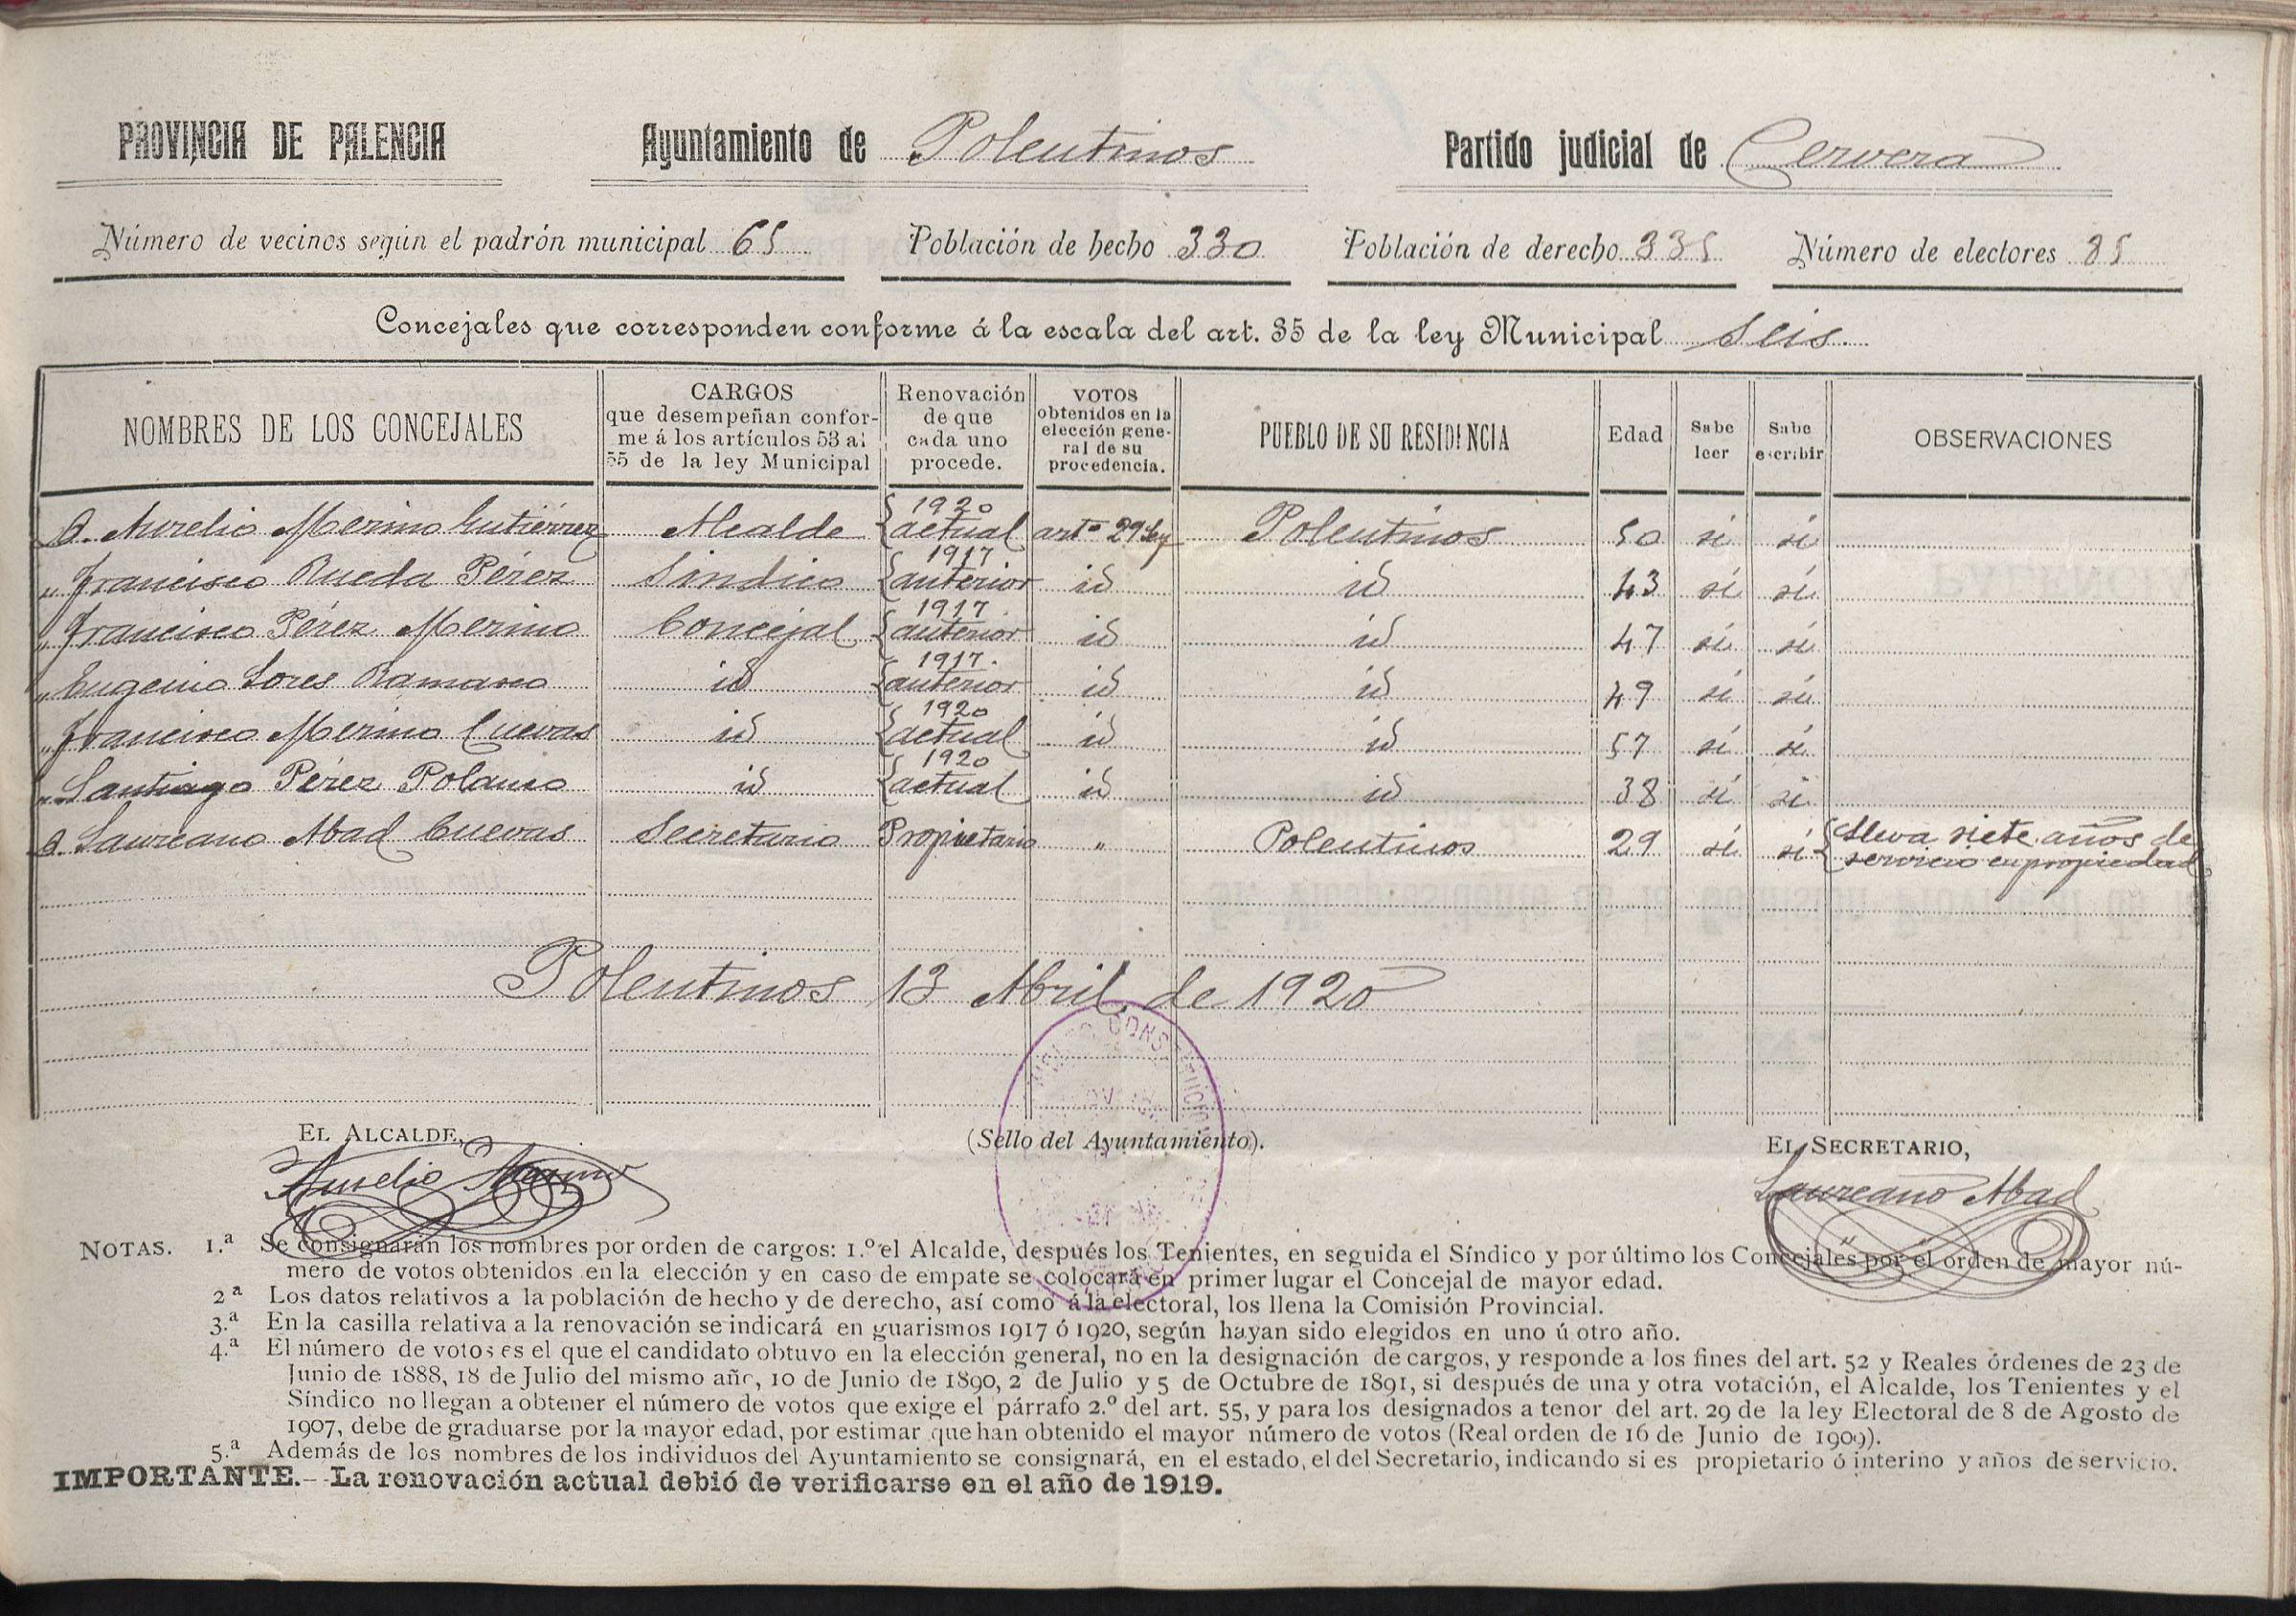 PROVINCIA DE PALENCIA Ayuntamiento de Polentinos Partido judicial de Cervera
Número de vecinos según el padrón municipal 65 Población de hecho 330 Población de derecho 335 Número de electores 85
Concejales que corresponden conforme á la escala del art. 35 de la ley Municipal Seis.
NOMBRES DE LOS CONCEJALES
CARGOS
que desempeñan confor-
me á los artículos 53 al
55 de la ley Municipal
Renovación
de que
cada uno
procede.
VOTOS
obtenidos en la
elección gene-
ral de su
procedencia.
PUEBLO DE SU RESIDENCIA
Edad
Sabe
leer
Sabe
escribir
OBSERVACIONES
D. Aurelio Merino Gutiérrez Alcalde { 1920 actual artº 29 Ley Polentinos 50 si si
" Francisco Rueda Pérez Sindico { 1917 anterior id id 43 sí sí
" Francisco Pérez Merino Concejal { 1917 anterior id id 47 sí sí
" Eugenio Lores id { 1917. anterior id id 49 sí sí
" Francisco Merino Cuevas id { 1920 actual id id 57 sí sí
" Santiago Pérez Polanco id { 1920 actual id id 38 sí si
D. Laureano Abad Cuevas Secretario Propietario " Polentinos 29 sí sí { lleva siete años de
servicio en propiedad
Polentinos 13 Abril de 1920
EL ALCALDE, (Sello del Ayuntamiento). EL SECRETARIO,
Aurelio Merino Laureano Abad
NOTAS. 1.ª Se consignarán los nombres por orden de cargos: 1.º el Alcalde, después los Tenientes, en seguida el Síndico y por último los Concejales por el orden de mayor nú-
mero de votos obtenidos en la elección y en caso de empate se colocará en primer lugar el Concejal de mayor edad.
2ª Los datos relativos a la población de hecho y de derecho, así como á la electoral, los llena la Comisión Provincial.
3.ª En la casilla relativa a la renovación se indicará en guarismos 1917 ó 1920, según hayan sido elegidos en uno ú otro año.
4.ª El número de votos es el que el candidato obtuvo en la elección general, no en la designación de cargos, y responde a los fines del art. 52 y Reales órdenes de 23 de
Junio de 1888, 18 de Julio del mismo año, 10 de Junio de 1890, 2 de Julio y 5 de Octubre de 1891, si después de una y otra votación, el Alcalde, los Tenientes y el
Síndico no llegan a obtener el número de votos que exige el párrafo 2.º del art. 55, y para los designados a tenor del art. 29 de la ley Electoral de 8 de Agosto de
1907, debe de graduarse por la mayor edad, por estimar que han obtenido el mayor número de votos (Real orden de 16 de Junio de 1909).
5.ª Además de los nombres de los individuos del Ayuntamiento se consignará, en el estado, el del Secretario, indicando si es propietario ó interino y años de servicio.
IMPORTANTE.—La renovación actual debió de verificarse en el año de 1919.